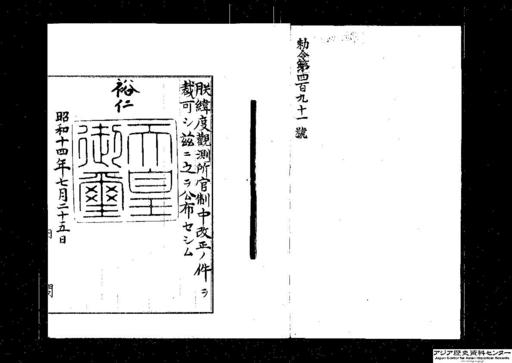 勅令第四百九十一號
朕緯度觀測所官制中改正ノ件ヲ
裁可シ茲ニ之ヲ公布セシム
裕仁
天皇御璽
昭和十四年七月二十五日
アジア歴史資料センター
Japan Center for Asian Historical Records